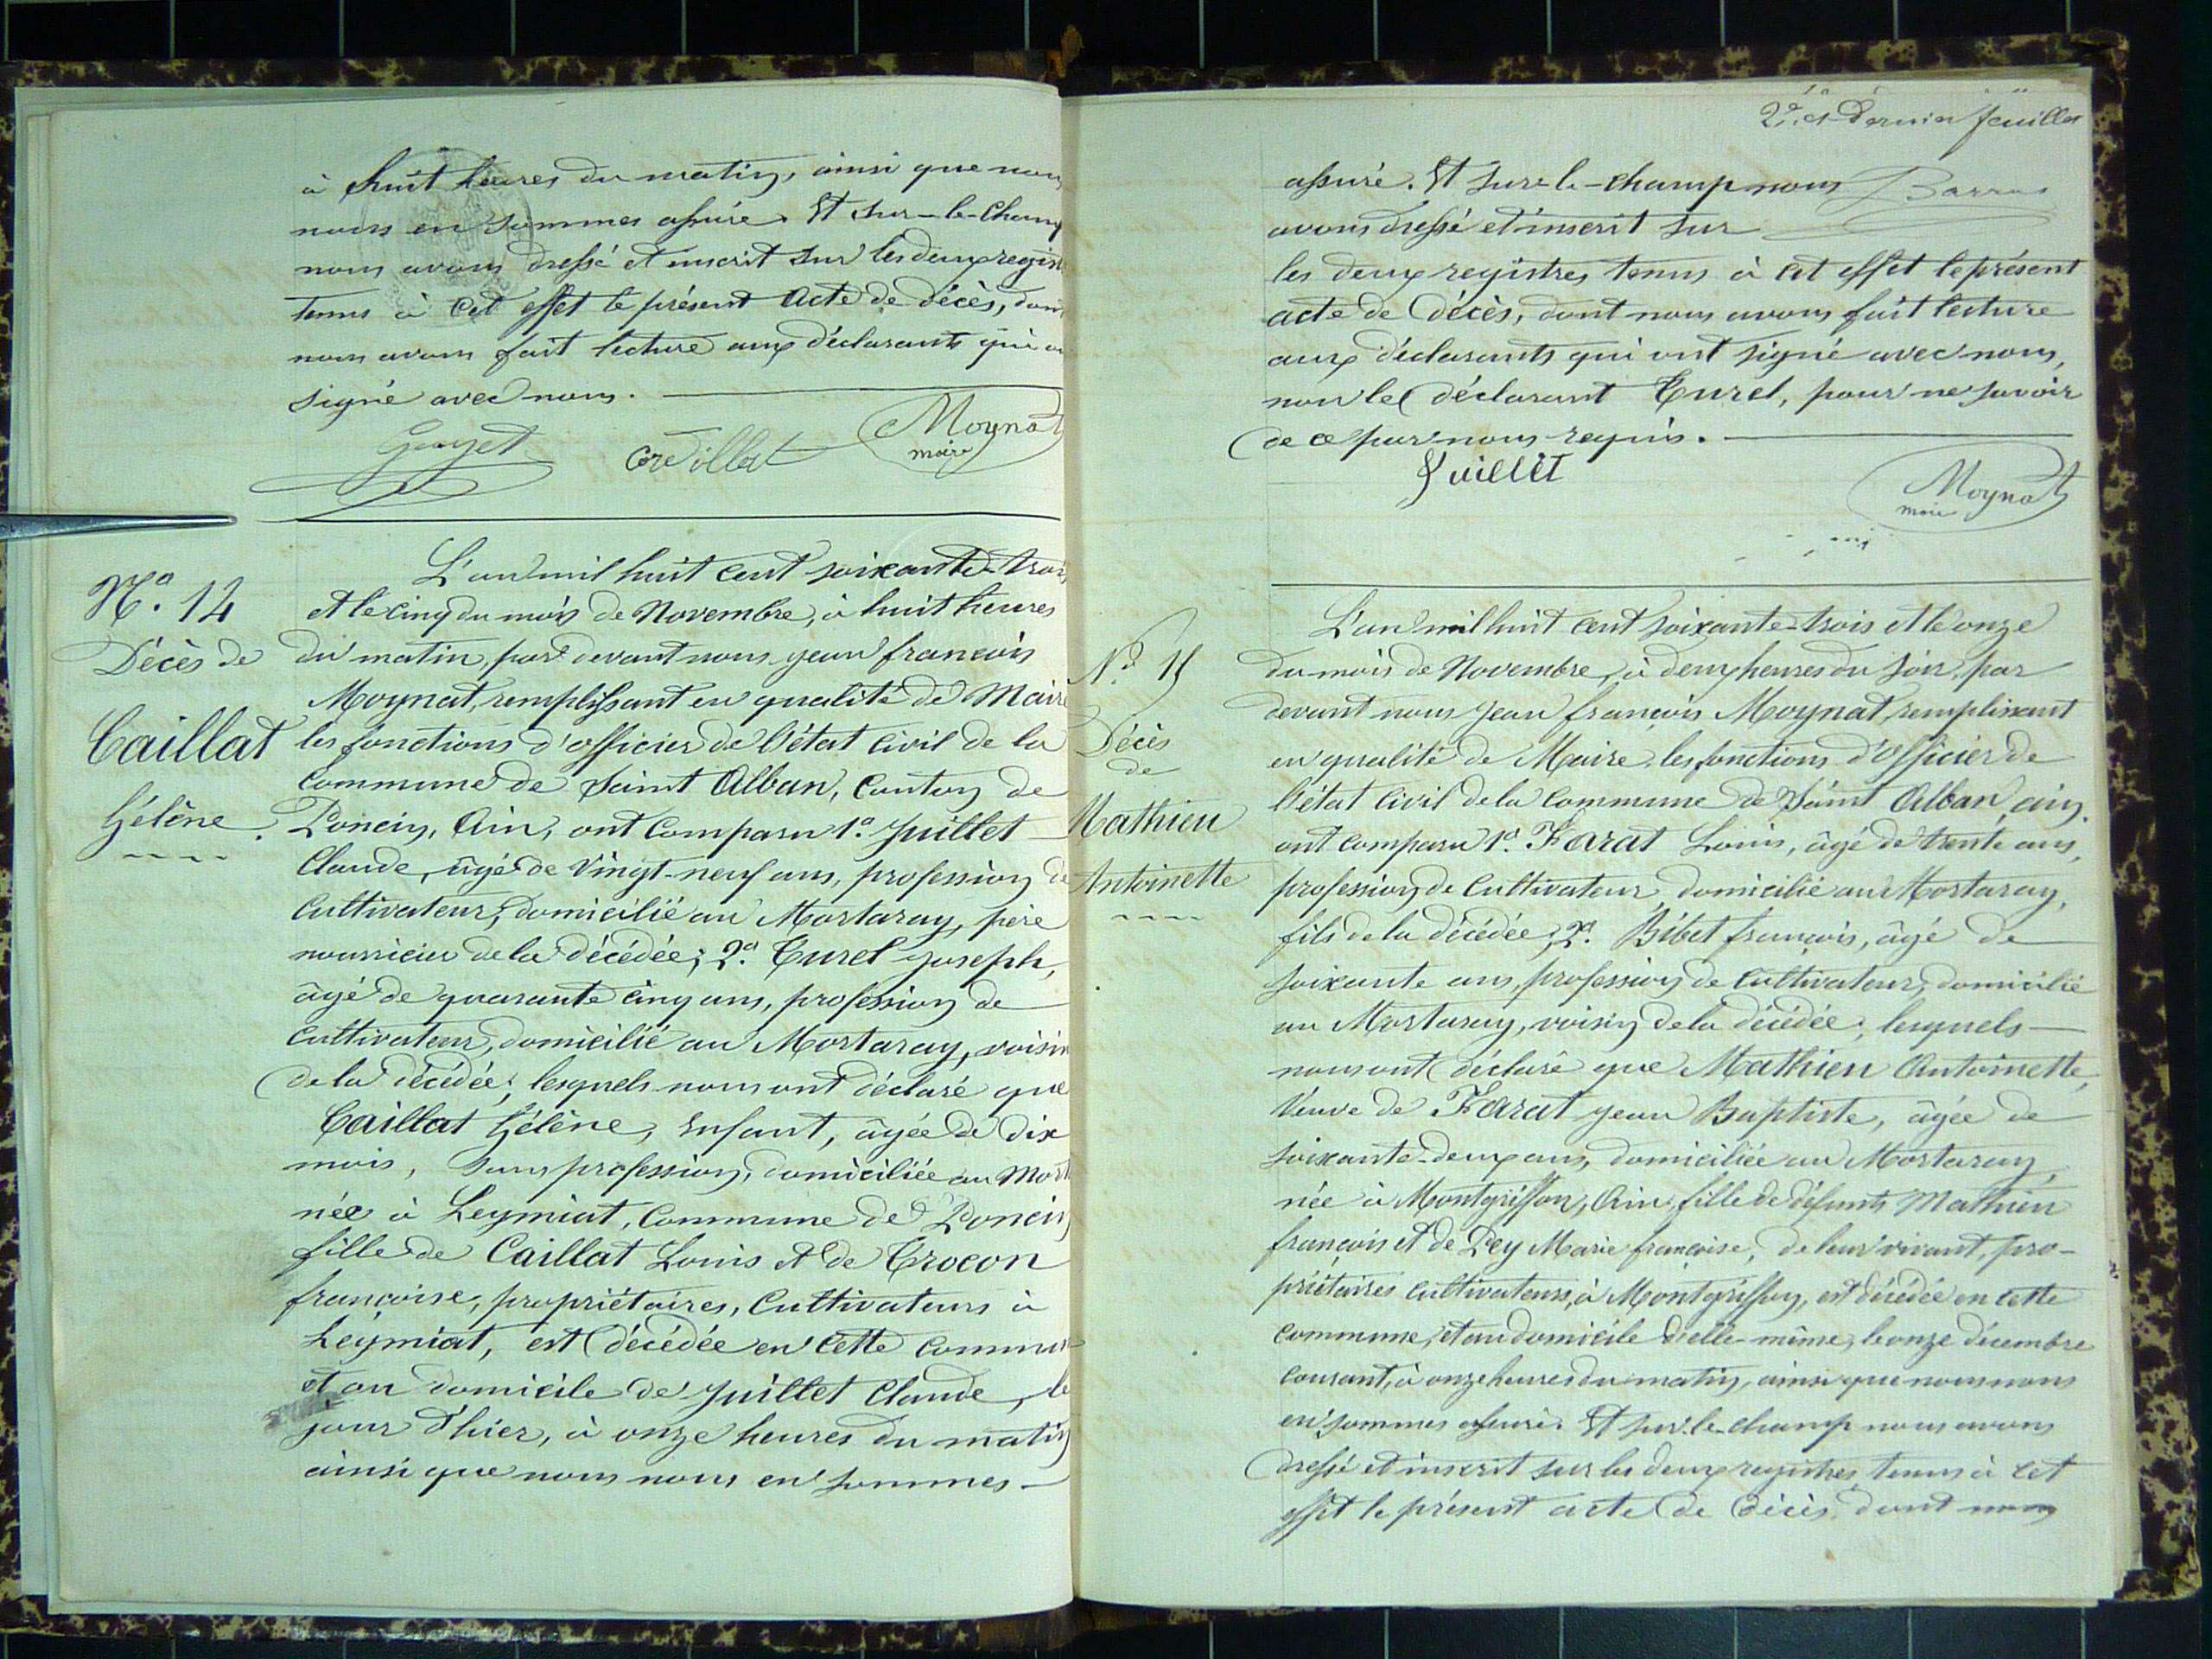 à huit heures du matin, ainsi que nous
nous en sommes assuré. Et sur-le-champ
nous avons dressé et inscrit sur les deux regist
tenus à cet effet le présent acte de décès, dont
nous avons fait lecture aux déclarants qui o
signé avec nous.
Goyet Cordillat Moynat
maire
N.o 14
Décès de
Caillat
Hélène.
L'an mil huit cent soixante-trois
et le cinq du mois de Novembre, à huit heures
du matin, par devant nous jean françois
Moynat, remplissant en qualité de Maire
les fonctions d'officier de l'état civil de la
Commune de Saint Alban, Canton de
Poncin, Ain, ont comparu 1.o Juillet
Claude, âgé de vingt-neuf ans, profession de
Cultivateur, domicilié au Mortaray, père
nourricier de la décédée; 2.o Curel joseph,
âgé de quarante cinq ans, profession de
Cultivateur, domicilié au Mortaray, voisin
de la décédée; lesquels nous ont déclaré que
Caillat Hélène, enfant, âgée de dix
mois, sans profession, domiciliée au Mort
née à Leymiat, Commune de Poncin
fille de Caillat Louis et de Crocon
françoise, propriétaires, Cultivateurs à
Leymiat, est décédée en cette commun
et au domicile de Juillet Claude, le
jour d'hier, à onze heures du matin
ainsi que nous nous en sommes
2.e et Dernier feuillet
assuré. Et sur-le-champ nous Barras
avons dressé et inscrit sur
les deux registres tenus à cet effet le présent
acte de décès, dont nous avons fait lecture
aux déclarants qui ont signé avec nous,
non le déclarant Curel, pour ne savoir
de ce par nous requis.
Juillet
Moynat
maire
N.o 15
Décès
de
Mathieu
Antoinette
L'an mil huit cent soixante-trois et le onze
du mois de Novembre, à deux heures du soir, par
devant nous jean françois Moynat, remplissant
en qualité de Maire, les fonctions d'officier de
l'état civil de la commune de Saint Alban, ain,
ont comparu 1.o Farat Louis, âgé de trente ans,
profession de Cultivateur, domicilié au Mortaray,
fils de la décédée; 2.o Bibet françois, âgé de
soixante ans, profession de Cultivateur, domicilié
au Mortaray, voisin de la décédée, lesquels
nous ont déclaré que Mathieu Antoinette,
Veuve de Farat jean Baptiste, âgée de
soixante-deux ans, domiciliée au Mortaray,
née à Montgriffon, Ain, fille de défunts Mathieu
françois et de Pey Marie françoise, de leur vivant, pro-
priétaires cultivateurs, à Montgriffon, est décédée en cette
commune, et au domicile d'elle-même, le onze décembre
courant, à onze heures du matin, ainsi que nous nous
en sommes assuré. Et sur-le-champ nous avons
dressé et inscrit sur les deux registres tenus à cet
effet le présent acte de décès dont nous